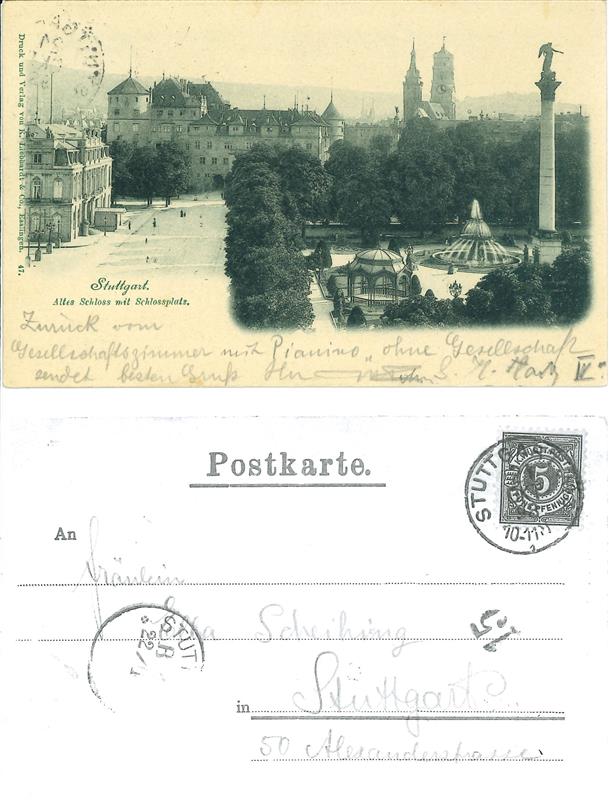 Druck und Verlag von K. Liebhardt & Co., Esslingen. 47.
Stuttgart.
Altes Schloss mit Schlossplatz.
Zurück vom
Gesellschaftszimmer mit Pianino „ohne Gesellschaft
sendet besten Gruß
Postkarte.
STUTTG
5
10-11
An
Fräulein
Scheihing
STUTT
22/
in Stuttgart
50 Alexanderstrasse